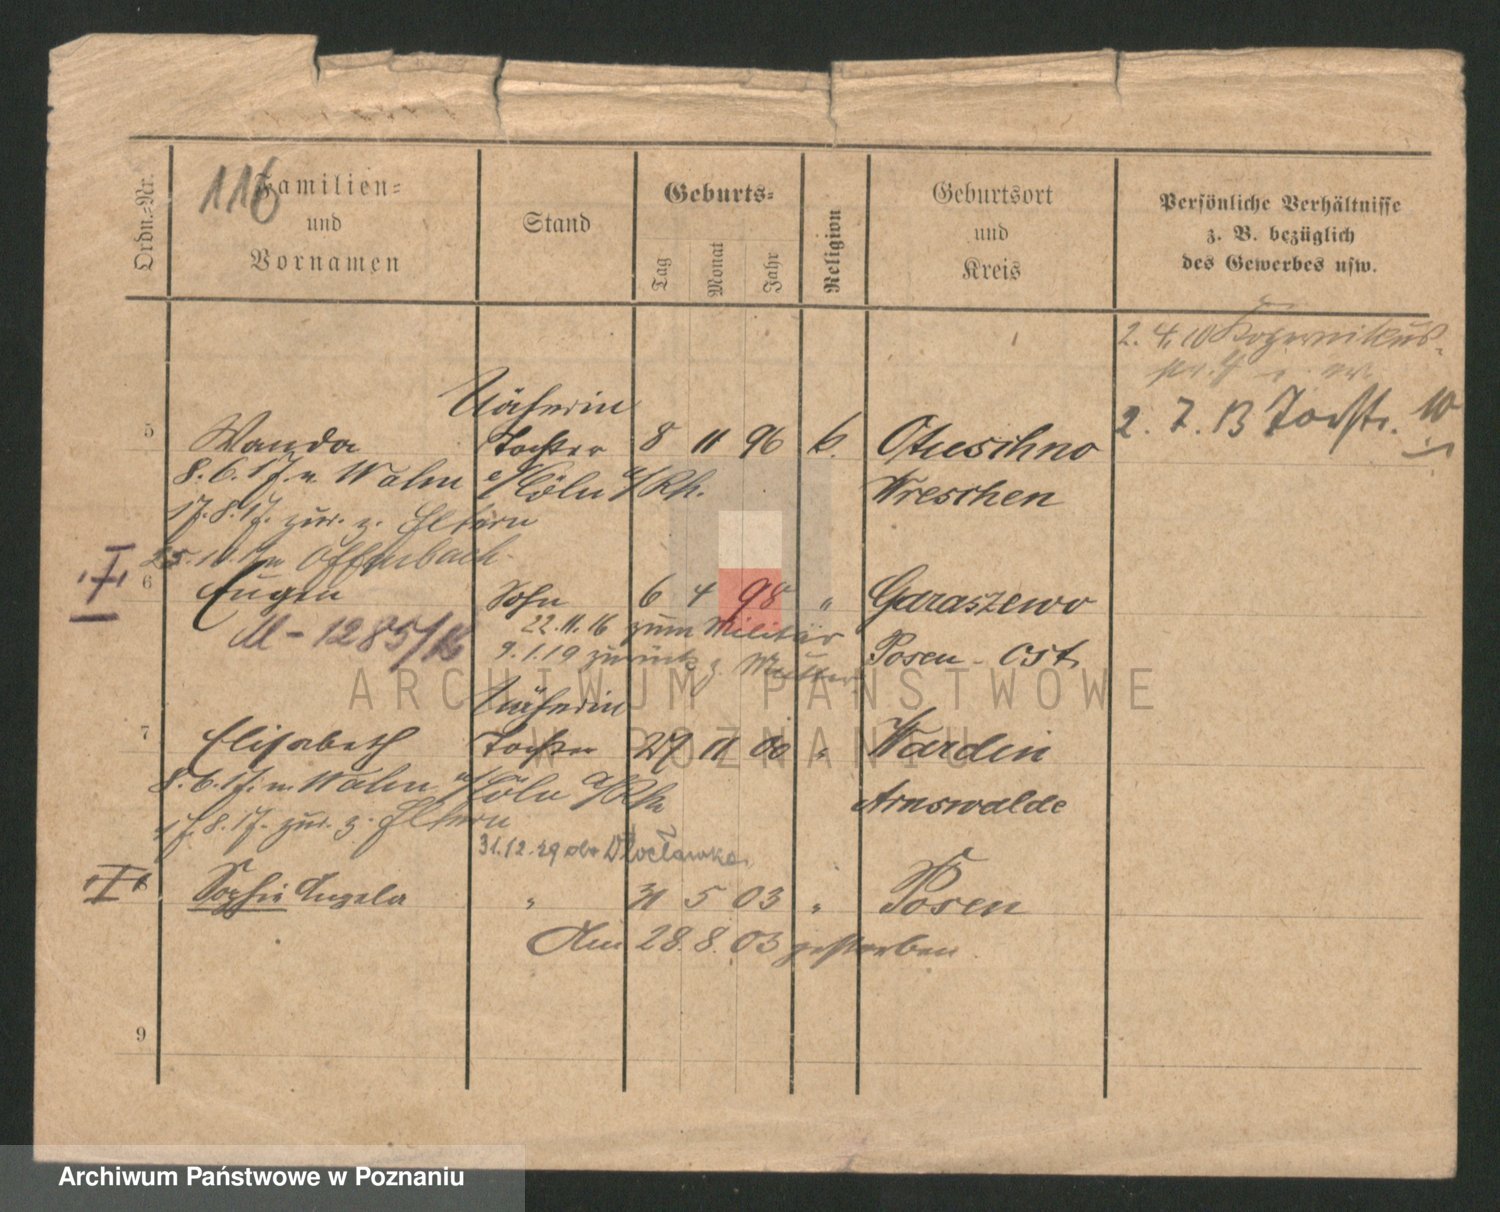 116
Ordn.-Nr.
Familien-
und
Vornamen
Stand
Geburts-
Tag
Monat
Jahr
Religion
Geburtsort
und
Kreis
Persönliche Verhältnisse
z. B. bezüglich
des Gewerbes usw.
2. 4. 10 Kopernikus-
str.
2. 7. 13 Torstr. 10
Näherin
5 Wanda Tochter 8 11 96 k. Otuschno
8. 6. 17. n Wahn b/Cöln a/Rh. Wreschen
17. 8. 17. zur. z. Eltern
25. Offenbach
6 Eugen Sohn 6 4 98 " Garaszewo
M - 1285/16 22.11.16 zum Militär
9.1.19 zurück z. Mutter Posen-Ost
Näherin
7 Elisabeth Tochter 27 11 00 " Wardin
8. 6. 17. n. Wahn b/Cöln a/Rh Arnswalde
17. 8. 17. zur. z. Eltern
31.12.29 do Włocławka
8 Sophie Angela " 31 5 03 " Posen
Am 28. 8. 03 gestorben
9
ARCHIWUM PAŃSTWOWE
W POZNANIU
Archiwum Państwowe w Poznaniu